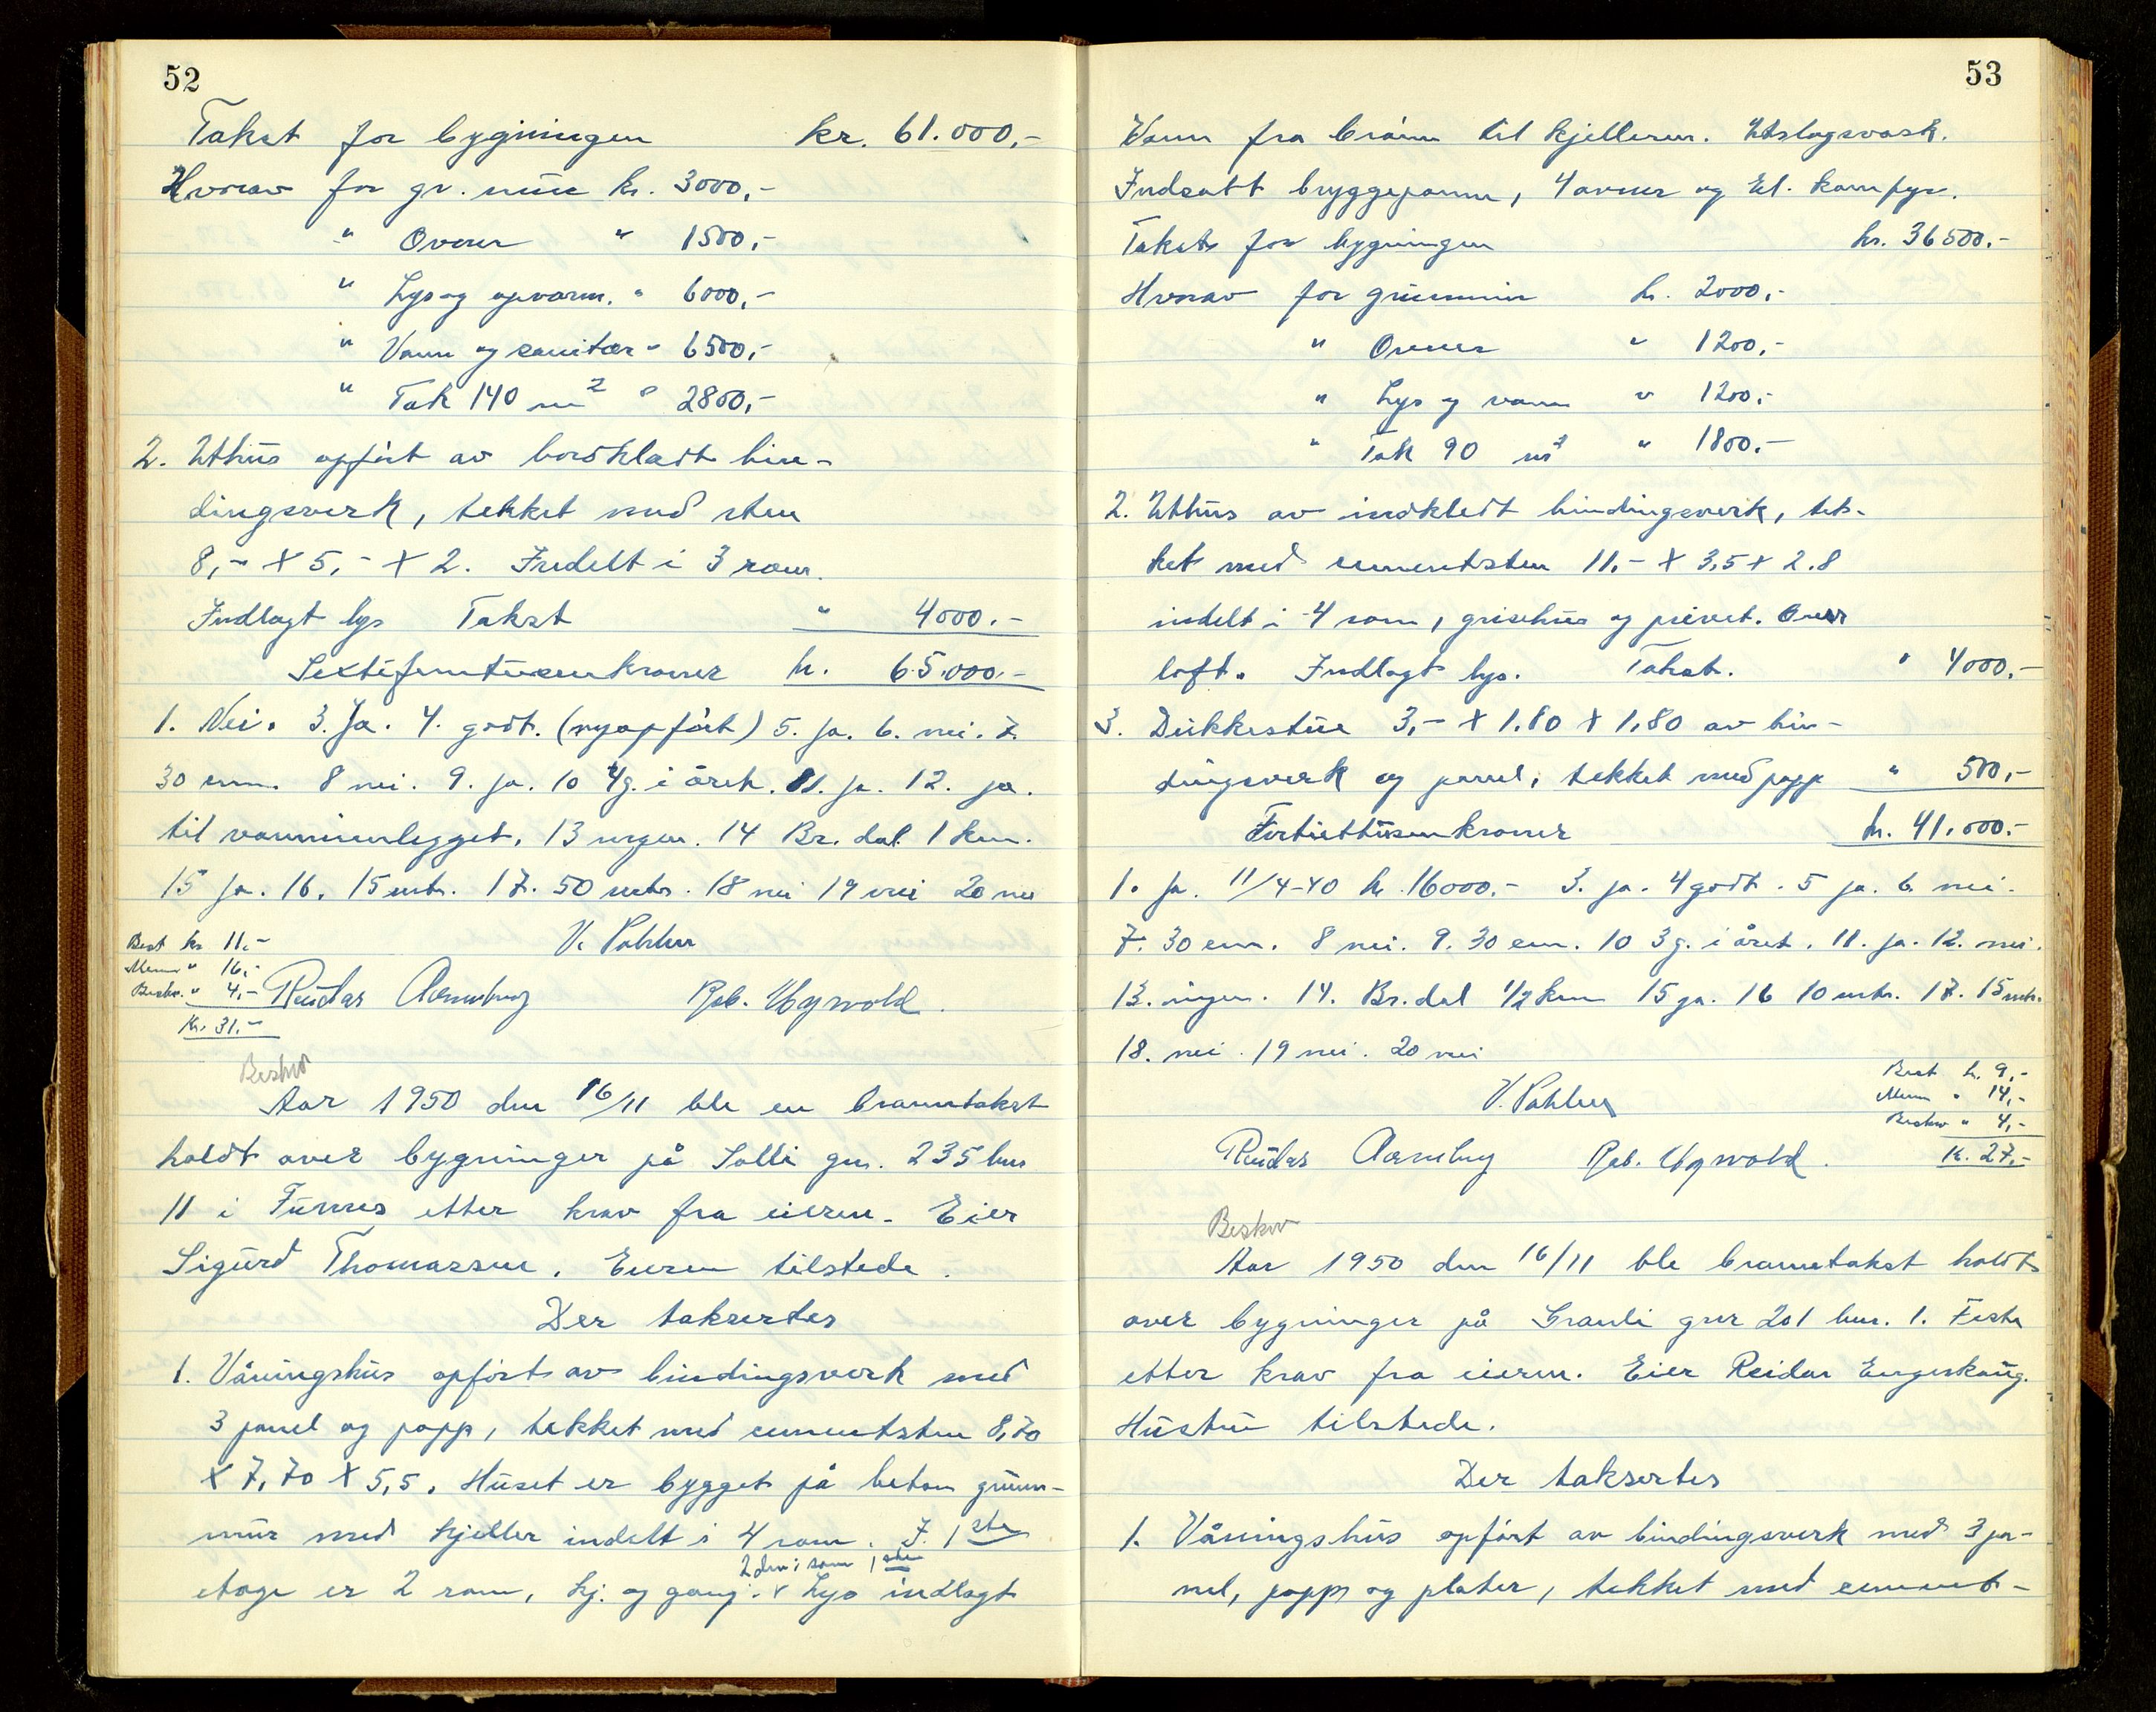 52
Takst for bygningen kr. 61.000,-
Hvorav for gr. mur kr. 3000,-
" Ovner " 1500,-
" Lys og opvarm. " 6000,-
" Vann og sanitær " 6500,-
" Tak 140 m2 " 2800,-
2. Uthus opført av bordkledt bin-
dingsverk, tekket med sten
8,- x 5,- x 2. Indelt i 3 rom.
Indlagt lys Takst " 4000.-
Sextifemtusenkroner kr. 65.000.-
1. Nei. 3. Ja. 4. godt. (nyopført) 5. ja. 6. nei. 7.
30 cm. 8 nei. 9. ja. 10 4g. i året. 11. ja. 12. ja.
til vannminlegget. 13 ingen. 14 Br. dal. 1 km.
15 ja. 16. 15 mtr. 17. 50 mtr. 18 nei 19 nei 20 nei
Best kr. 11.-
Menn " 16,-
Beskr. " 4,-
Kr. 31.-
V. Pahlen
Reidar Aamlug Rob. Ugwold.
Beskr
Aar 1950 den 16/11 ble en branntakst
holdt over bygninger på Solli gnr. 235 bnr
11 i Furnes etter krav fra eieren. Eier
Sigurd Thomassen. Eieren tilstede.
Der taksertes
1. Våningshus opført av bindingsverk med
3 panel og papp, tekket med cementsten 8,70
x 7,70 x 5,5. Huset er bygget på beton grunn-
mur med kjeller indelt i 4 rom. I. 1ste
2den i som 1ste
etage er 2 rom, kj. og gang. v Lys indlagt
53
Vann fra brønn til kjelleren. Utslagsvask.
Indsatt bryggepanne, 4 ovner og El. komfyr.
Takst for bygningen kr. 36500.-
Hvorav for grunnmur kr. 2000,-
" Ovner " 1200,-
" Lys og vann " 1200,-
" Tak 90 m2 " 1800.-
2. Uthus av indkledt bindingsverk, tek-
ket med cementsten 11,- x 3,5 x 2.8
indelt i 4 rom, grisehus og privet. Over
loft. Indlagt lys. Takst. " 4000.-
3. Dukkestue 3,- x 1,80 x 1,80 av bin-
dingsverk og panel, tekket med papp " 500,-
Førtiettusenkroner kr. 41.000.-
1. Ja. 11/4-40 kr. 16000.- 3. ja. 4 godt. 5 ja. 6. nei.
7. 30 cm. 8 nei. 9. 30 cm. 10 3g. i året. 11. ja. 12. nei.
13. ingen. 14. Br. dal 1/2 km 15 ja. 16 10 mtr. 17. 15 mtr.
18. nei. 19 nei. 20 nei
V. Pahlen
Best kr. 9,-
Menn " 14,-
Beskr " 4,-
Kr. 27.-
Reidar Aamlug Rob. Ugwold.
Beskr
Aar 1950 den 16/11 ble branntakst holdt
over bygninger på Granli gnr 201 bnr. 1. Feste
etter krav fra eieren. Eier Reidar Engeskaug.
Hustru tilstede.
Der taksertes
1. Våningshus opført av bindingsverk med 3 pa-
nel, papp og plater, tekket med cement-